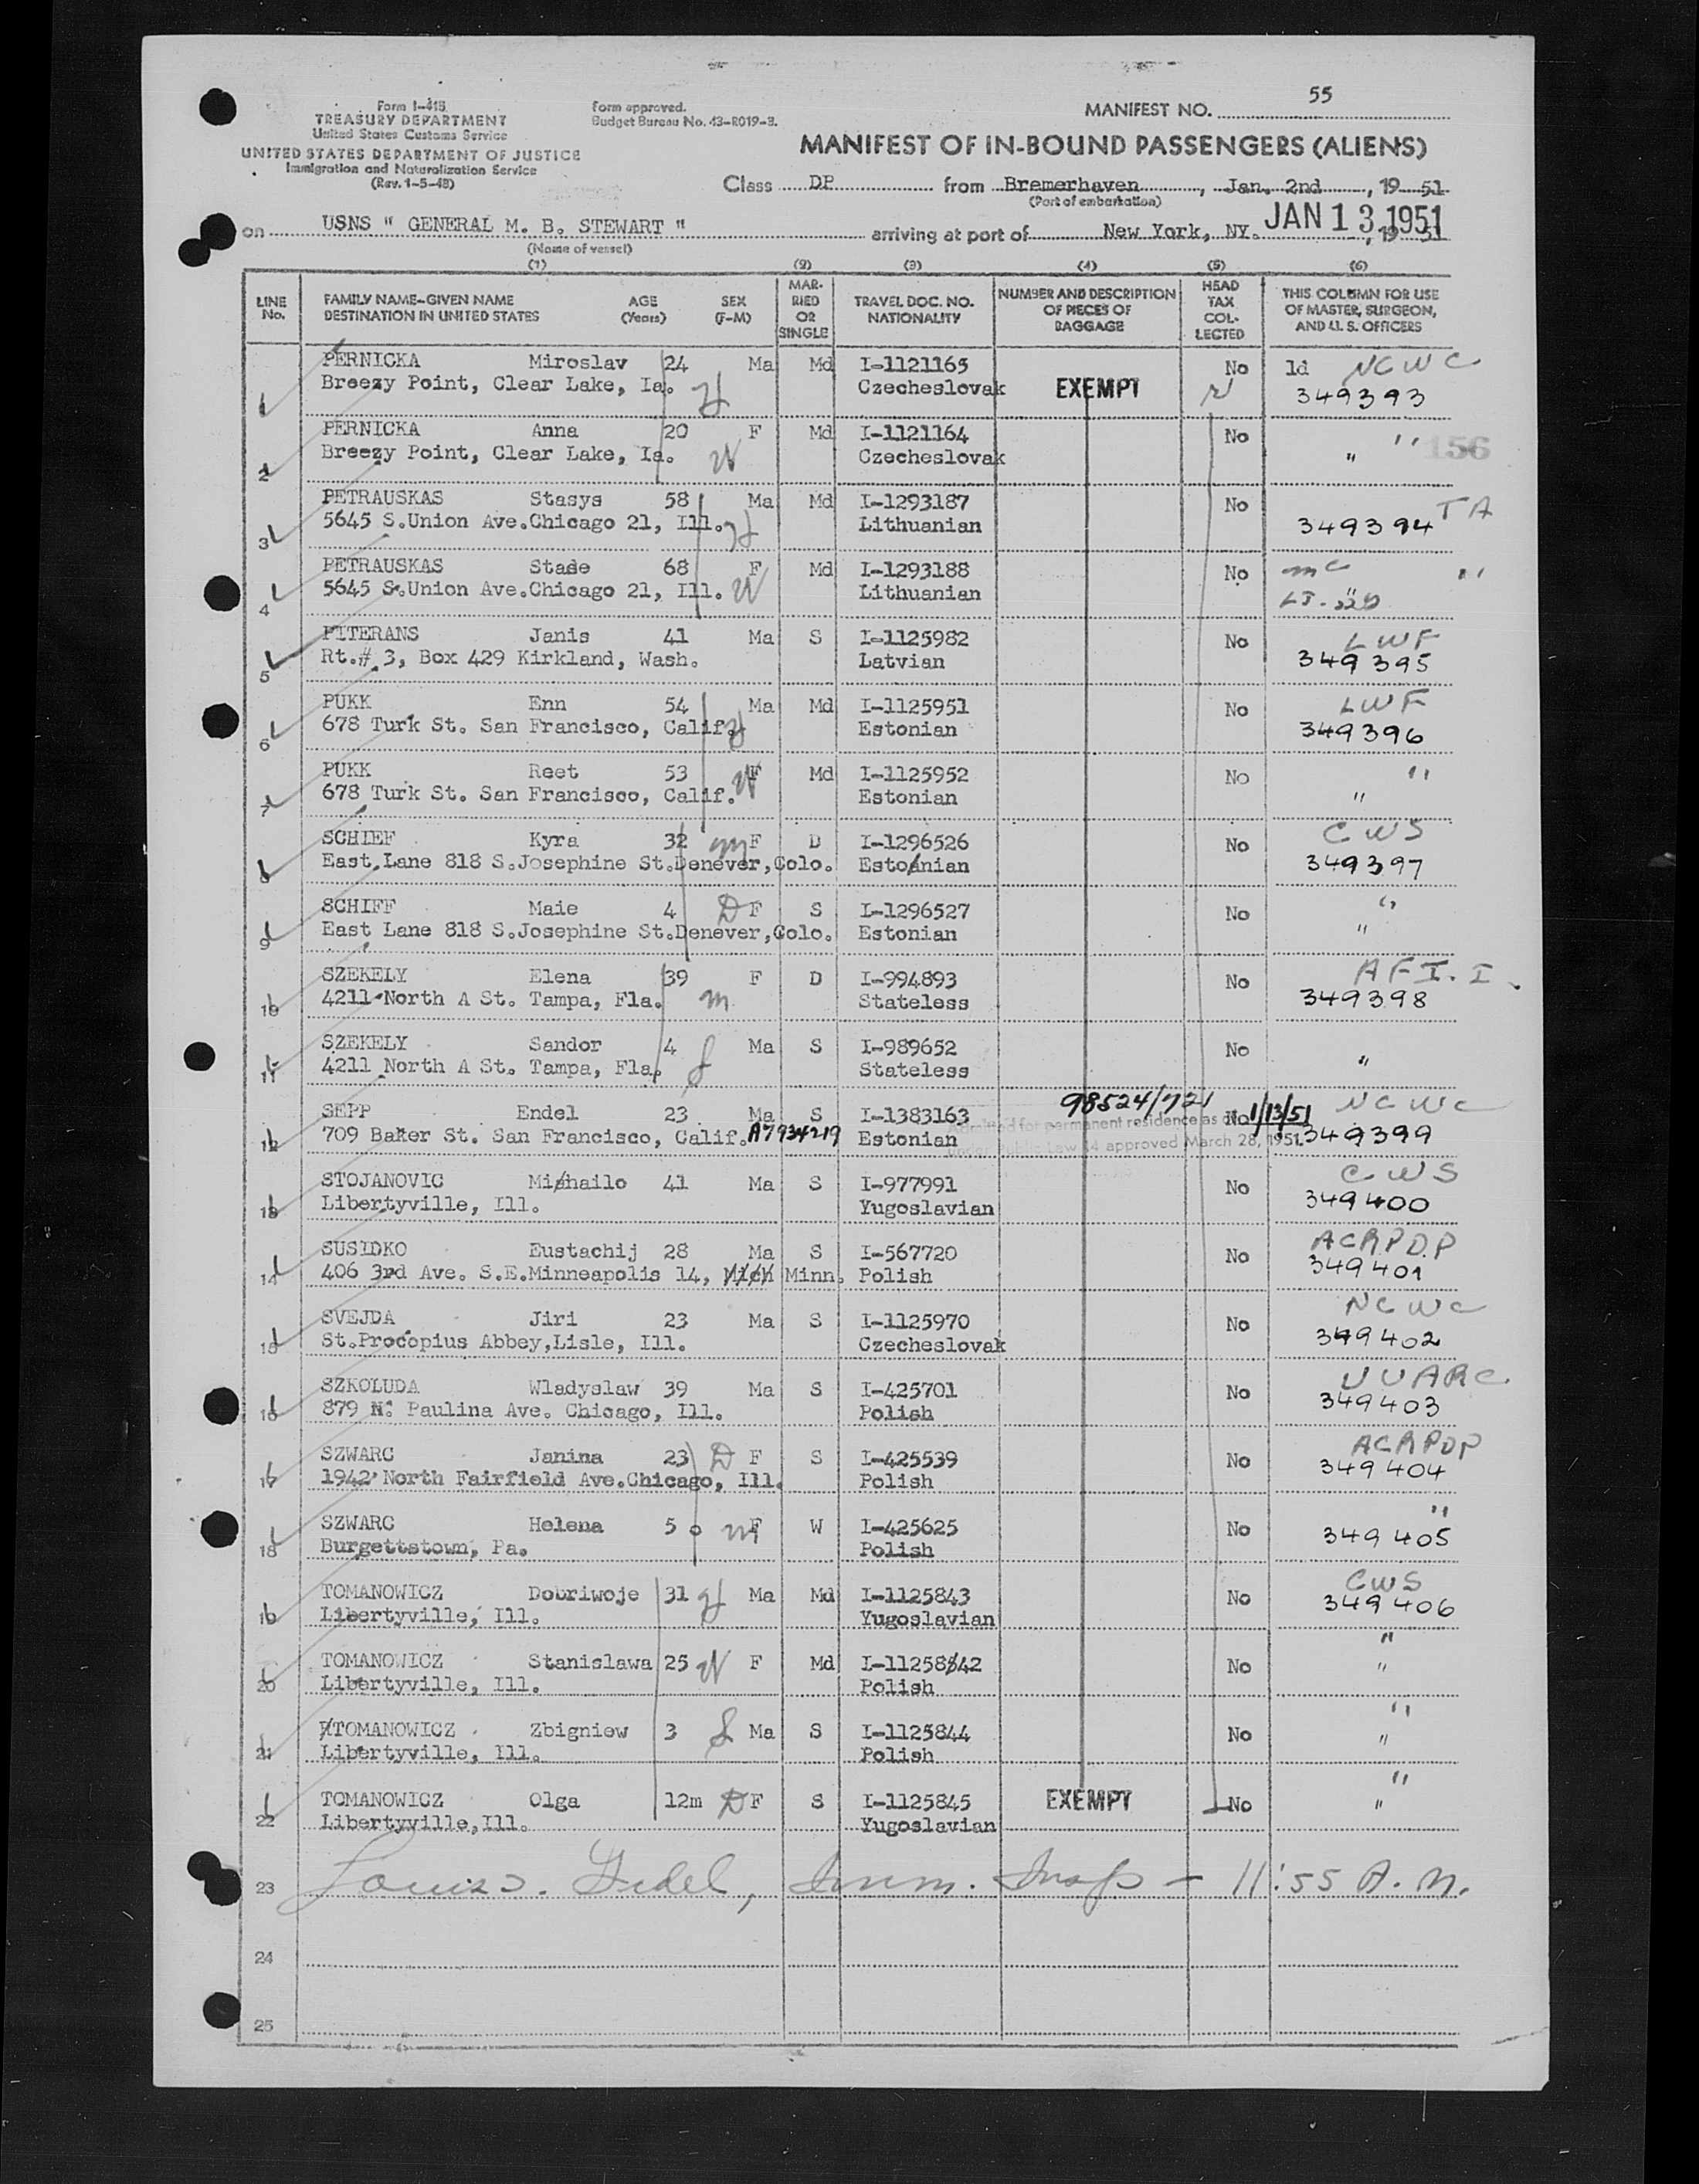 Form I-415
TREASURY DEPARTMENT
United States Customs Service
UNITED STATES DEPARTMENT OF JUSTICE
Immigration and Naturalization Service
(Rev. 1-5-48)
Form approved.
Budget Bureau No. 43-R019-3.
MANIFEST NO. 55
MANIFEST OF IN-BOUND PASSENGERS (ALIENS)
Class DP from Bremerhaven, Jan. 2nd, 19 51
(Port of embarkation)
on USNS " GENERAL M. B. STEWART " arriving at port of New York, NY. JAN 13 1951, 19 51
(Name of vessel)
(1) (2) (3) (4) (5) (6)
LINE No. FAMILY NAME-GIVEN NAME DESTINATION IN UNITED STATES AGE (Years) SEX (F-M) MARRIED OR SINGLE TRAVEL DOC. NO. NATIONALITY NUMBER AND DESCRIPTION OF PIECES OF BAGGAGE HEAD TAX COLLECTED THIS COLUMN FOR USE OF MASTER, SURGEON, AND U. S. OFFICERS
1 PERNICKA Miroslav 24 Ma Md I-1121165 No 1d NCWC
Breezy Point, Clear Lake, Ia. Czecheslovak EXEMPT 349393
2 PERNICKA Anna 20 F Md I-1121164 No " 156
Breezy Point, Clear Lake, Ia. W Czecheslovak "
3 PETRAUSKAS Stasys 58 Ma Md I-1293187 No TA
5645 S.Union Ave.Chicago 21, Ill. Lithuanian 349394
4 PETRAUSKAS Stase 68 F Md I-1293188 No mc "
5645 S.Union Ave.Chicago 21, Ill. W Lithuanian "
5 PITERANS Janis 41 Ma S I-1125982 No LWF
Rt.# 3, Box 429 Kirkland, Wash. Latvian 349395
6 PUKK Enn 54 Ma Md I-1125951 No LWF
678 Turk St. San Francisco, Calif. Estonian 349396
7 PUKK Reet 53 W F Md I-1125952 No "
678 Turk St. San Francisco, Calif. Estonian "
8 SCHIEF Kyra 32 m F D I-1296526 No CWS
East Lane 818 S.Josephine St.Denever,Colo. Estonian 349397
9 SCHIFF Maie 4 D F S I-1296527 No "
East Lane 818 S.Josephine St.Denever,Colo. Estonian "
10 SZEKELY Elena 39 F D I-994893 No AFI.I.
4211 North A St. Tampa, Fla. m Stateless 349398
11 SZEKELY Sandor 4 Ma S I-989652 No
4211 North A St. Tampa, Fla. S Stateless "
98524/721
12 SEPP Endel 23 Ma S I-1383163 No 1/13/51 NCWC
Admitted for permanent residence as of
709 Baker St. San Francisco, Calif. A7934219 Estonian 349399
under Public Law 14 approved March 28, 1951.
13 STOJANOVIC Mihailo 41 Ma S I-977991 No CWS
Libertyville, Ill. Yugoslavian 349400
14 SUSIDKO Eustachij 28 Ma S I-567720 No ACRPDP
406 3rd Ave. S.E.Minneapolis 14, Mich Minn. Polish 349401
15 SVEJDA Jiri 23 Ma S I-1125970 No NCWC
St.Procopius Abbey,Lisle, Ill. Czecheslovak 349402
16 SZKOLUDA Wladyslaw 39 Ma S I-425701 No UUARC
879 N. Paulina Ave. Chicago, Ill. Polish 349403
17 SZWARC Janina 23 D F S I-425539 No ACRPDP
1942 North Fairfield Ave.Chicago, Ill. Polish 349404
18 SZWARC Helena 5 0 m F W I-425625 No "
Burgettstown, Pa. Polish 349405
19 TOMANOWICZ Dobriwoje 31 Ma Md I-1125843 No CWS
Libertyville, Ill. Yugoslavian 349406
20 TOMANOWICZ Stanislawa 25 W F Md I-1125842 No "
Libertyville, Ill. Polish "
21 TOMANOWICZ Zbigniew 3 S Ma S I-1125844 No "
Libertyville, Ill. Polish "
22 TOMANOWICZ Olga 12m D F S I-1125845 EXEMPT No "
Libertyville,Ill. Yugoslavian "
23 Louis J. Fidel, Imm. Insp - 11:55 A.M.
24
25